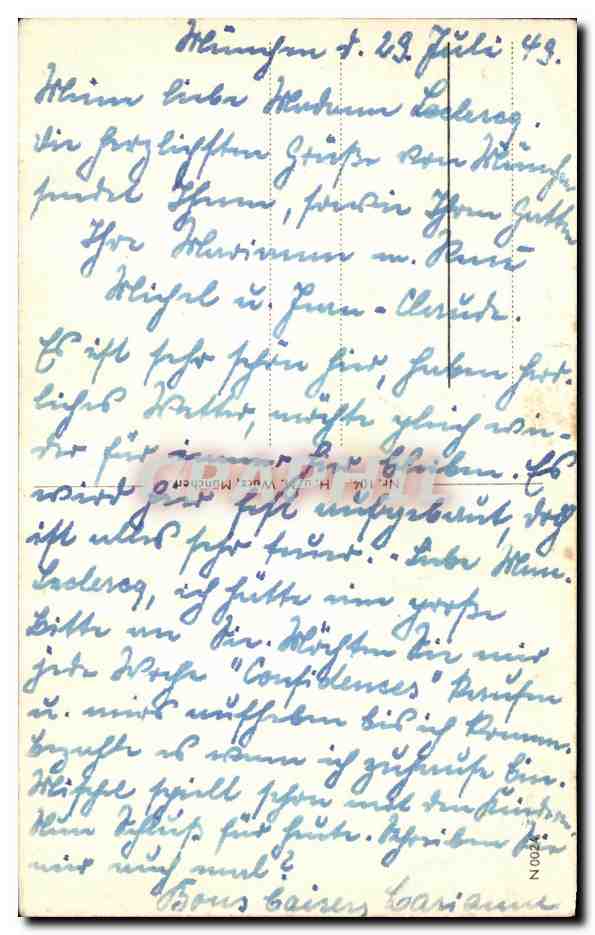 München d. 29. Juli 49.
Meine liebe Madame Leclercq.
die herzlichsten Grüße von München
sendet Ihnen, sowie Ihrem Gatten
Ihre Marianne u. René
Michel u. Jean-Claude.
Es ist sehr schön hier, haben herr-
liches Wetter, möchte gleich wie-
der für immer hier bleiben. Es
wird hier fest aufgebaut, doch
ist alles sehr teuer. - Liebe Mme.
Leclercq, ich hätte eine große
Bitte an Sie. Möchten Sie mir
jede Woche "Confidences" kaufen
u. mirs aufheben bis ich komme.
Bezahle es wenn ich zuhause bin.
Michel spielt schon mit den Kindern.
Nun Schluß für heute. Schreiben Sie
mir auch mal?
Bons baisers Marianne
Nr. 104 H. u. A. Wutz, München
N 0024
CPAPHIL